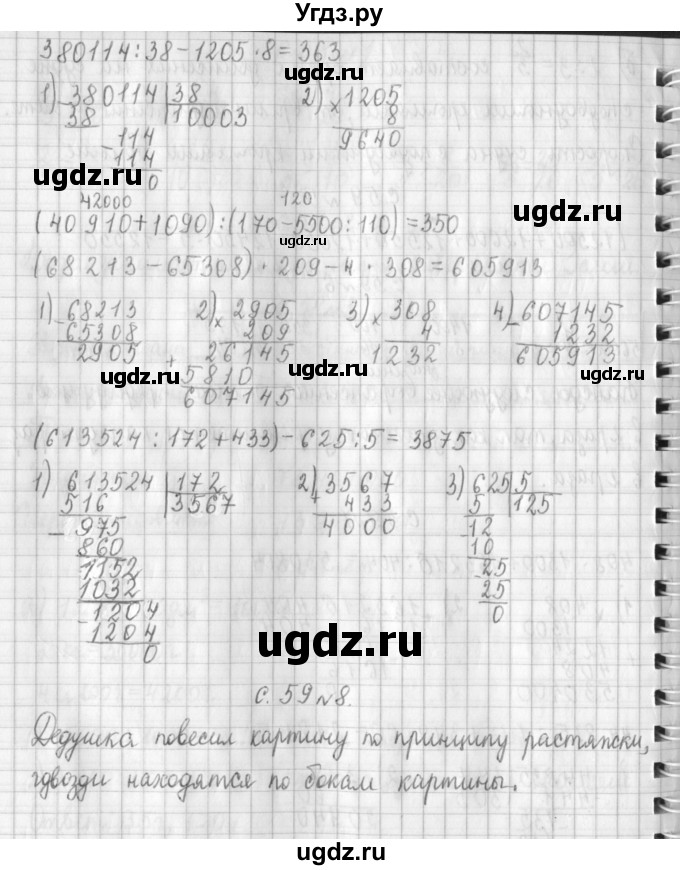 Угдз.ру
380114:38-1205·8=363
ugdz.ru
1) 380114 38 2) 1205
38 10003 × 8
-114 9640
114 ugdz.ru
ugdz.ru 0
42000 120
(40910+1090):(170-5500:110)=350
ugdz.ru
(68213-65308)·209-4·308=605913
1) 68213 2) 2905 3) 308 4) 607145
-65308 × 209 × 4 - 1232
2905 26145 1232 605913
ugdz.ru + 5810 ugdz.ru ugdz.ru
607145
(613524:172+433)-625:5=3875
1) 613524 172 2) 3567 3) 625 5
516 3567 + 433 5 125
ugdz.ru 4000 ugdz.ru
- 975 -12
860 10
1152 -25
1032 25
-1204 0
1204
0
ugdz.ru
с. 59 №8.
Дедушка повесил картину по принципу растяжки,
гдвозди находятся по бокам картины.
ugdz.ru ugdz.ru
ugdz.ru